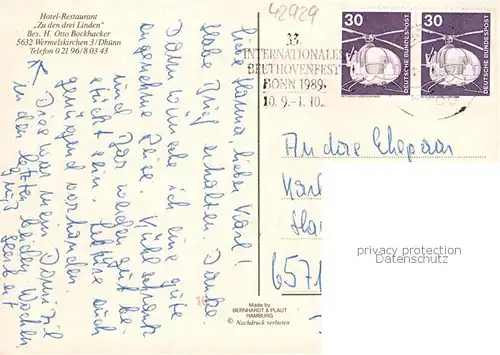 Hotel-Restaurant
„Zu den drei Linden"
Bes. H. Otto Bockhacker
5632 Wermelskirchen 3/Dhünn
Telefon 0 21 96/8 03 43
42929
33.
INTERNATIONALES
BEETHOVENFEST
BONN 1989
10.9.-1.10.
30
DEUTSCHE BUNDESPOST
30
DEUTSCHE BUNDESPOST
Liebe Hanna, lieber Karl!
Habe Brief erhalten. Danke.
Dann wünsche ich eine gute
angenehme Reise. Kühlschrank
und Bar werden gut be-
stückt sein. Lektüre auch
genügend vorhanden
Dies war mein Domizil
in den letzten beiden Wochen.
Gruß
An das Ehepaar
Karl
Ha
6571
Made by
BERNHARDT & PLAUT
HAMBURG
© Nachdruck verboten
privacy protection
Datenschutz